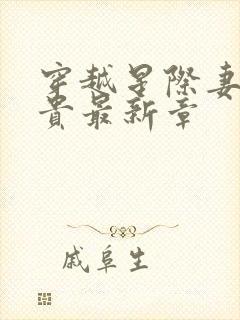 穿越星际妻
贵最新章
戚阜生